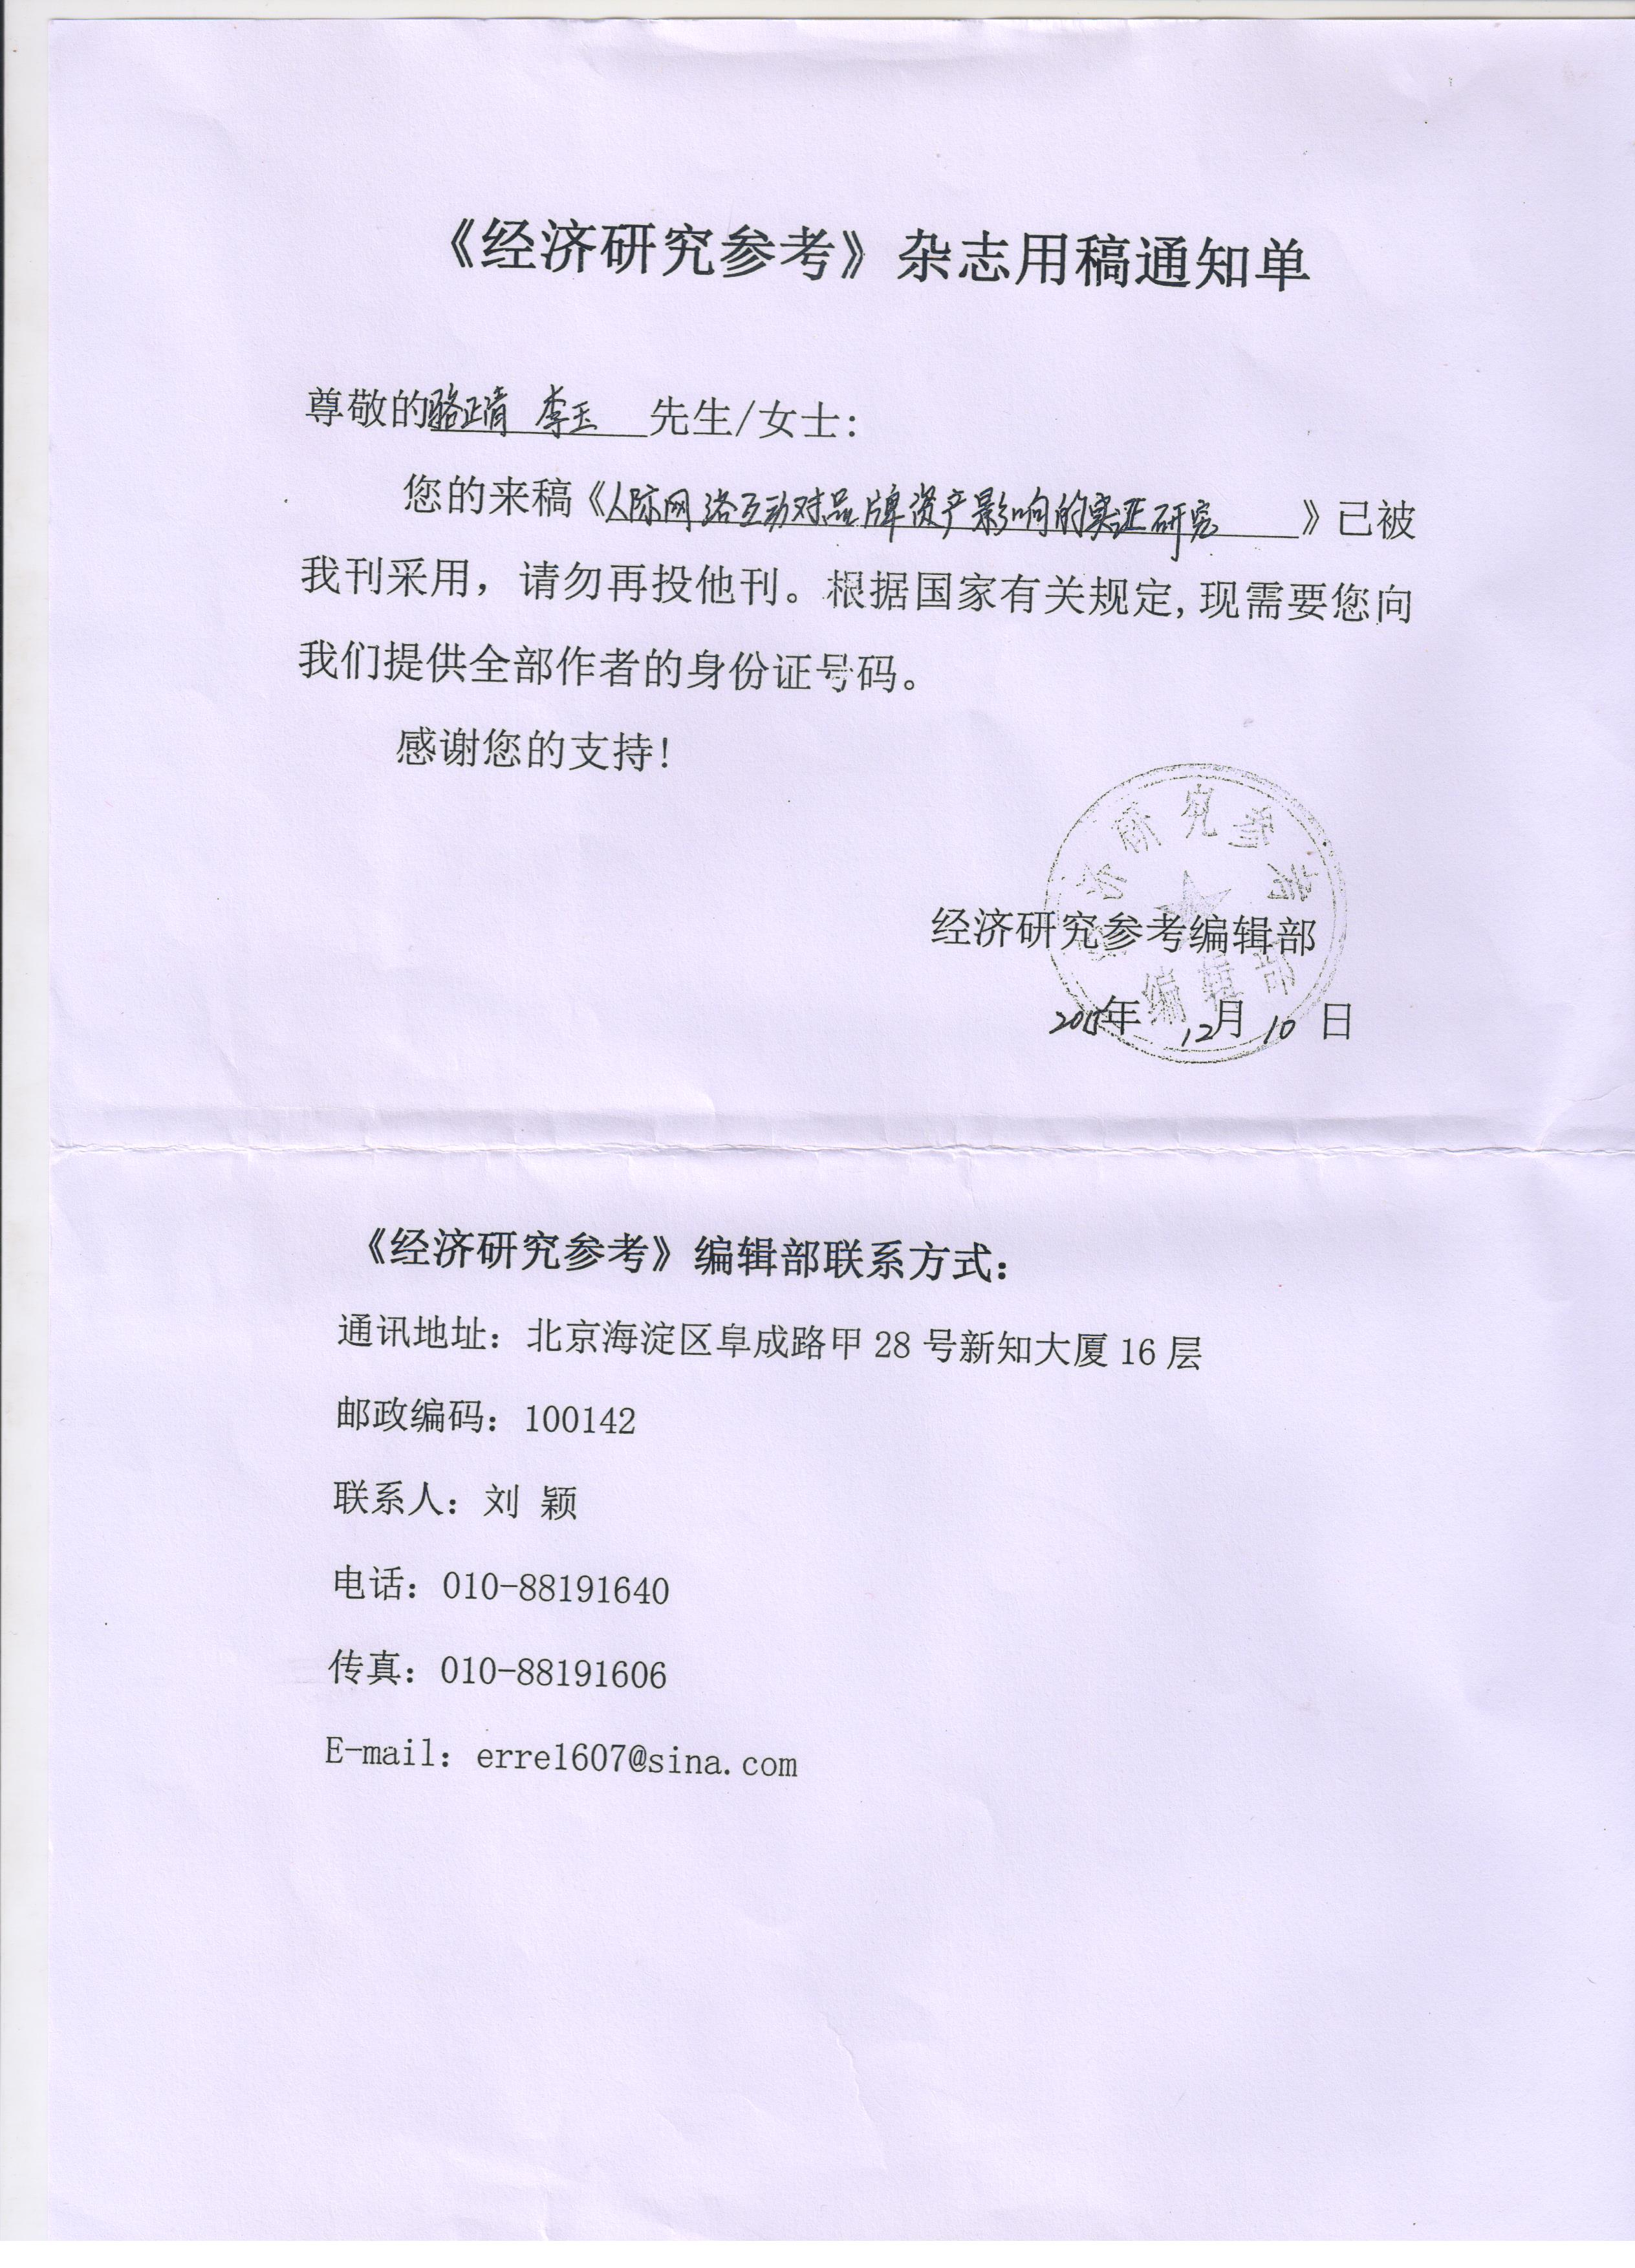 《经济研究参考》杂志用稿通知单
尊敬的骆正清 李玉 先生/女士:
您的来稿《人际网络互动对品牌资产影响的实证研究》已被
我刊采用，请勿再投他刊。根据国家有关规定,现需要您向
我们提供全部作者的身份证号码。
感谢您的支持!
研究参考
经济研究参考编辑部
编辑部
年 12月10日
《经济研究参考》编辑部联系方式：
通讯地址：北京海淀区阜成路甲 28 号新知大厦 16 层
邮政编码：100142
联系人：刘 颖
电话：010-88191640
传真：010-88191606
E-mail：erre1607@sina.com